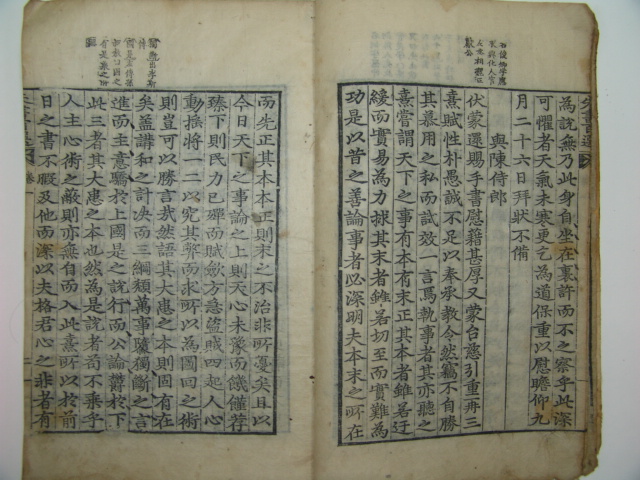 為說無乃此身自坐在裏許而不之察乎此深
可懼者天氣未寒更乞為道保重以慰瞻仰九
月二十六日拜狀不備
與陳侍郎
伏蒙還賜手書慰藉甚厚又蒙台慈引重再三
熹賦性朴愚誠不足以奉承教令然竊不自勝
其慕用之私而試效一言焉執事者其亦聽之
熹嘗謂天下之事有本有末正其本者雖若迂
緩而實易為力捄其末者雖若切至而實難為
功是以昔之善論事者必深明夫本末之所在
而先正其本本正則末之不治非所憂矣且以
今日天下之事論之上則天心未豫而饑饉荐
臻下則民力已殫而賦斂方急盜賊四起人心
動搖將一二以究其弊而求所以為圖回之術
則豈可以勝言哉然語其大患之本則固有在
矣蓋講和之計決而三綱頹萬事隳獨斷之言
進而主意驕於上國是之說行而公論鬱於下
此三者其大患之本也然為是說者苟不乘乎
人主心術之蔽則亦無自而入此熹所以於前
日之書不暇及他而深以夫格君心之非者有